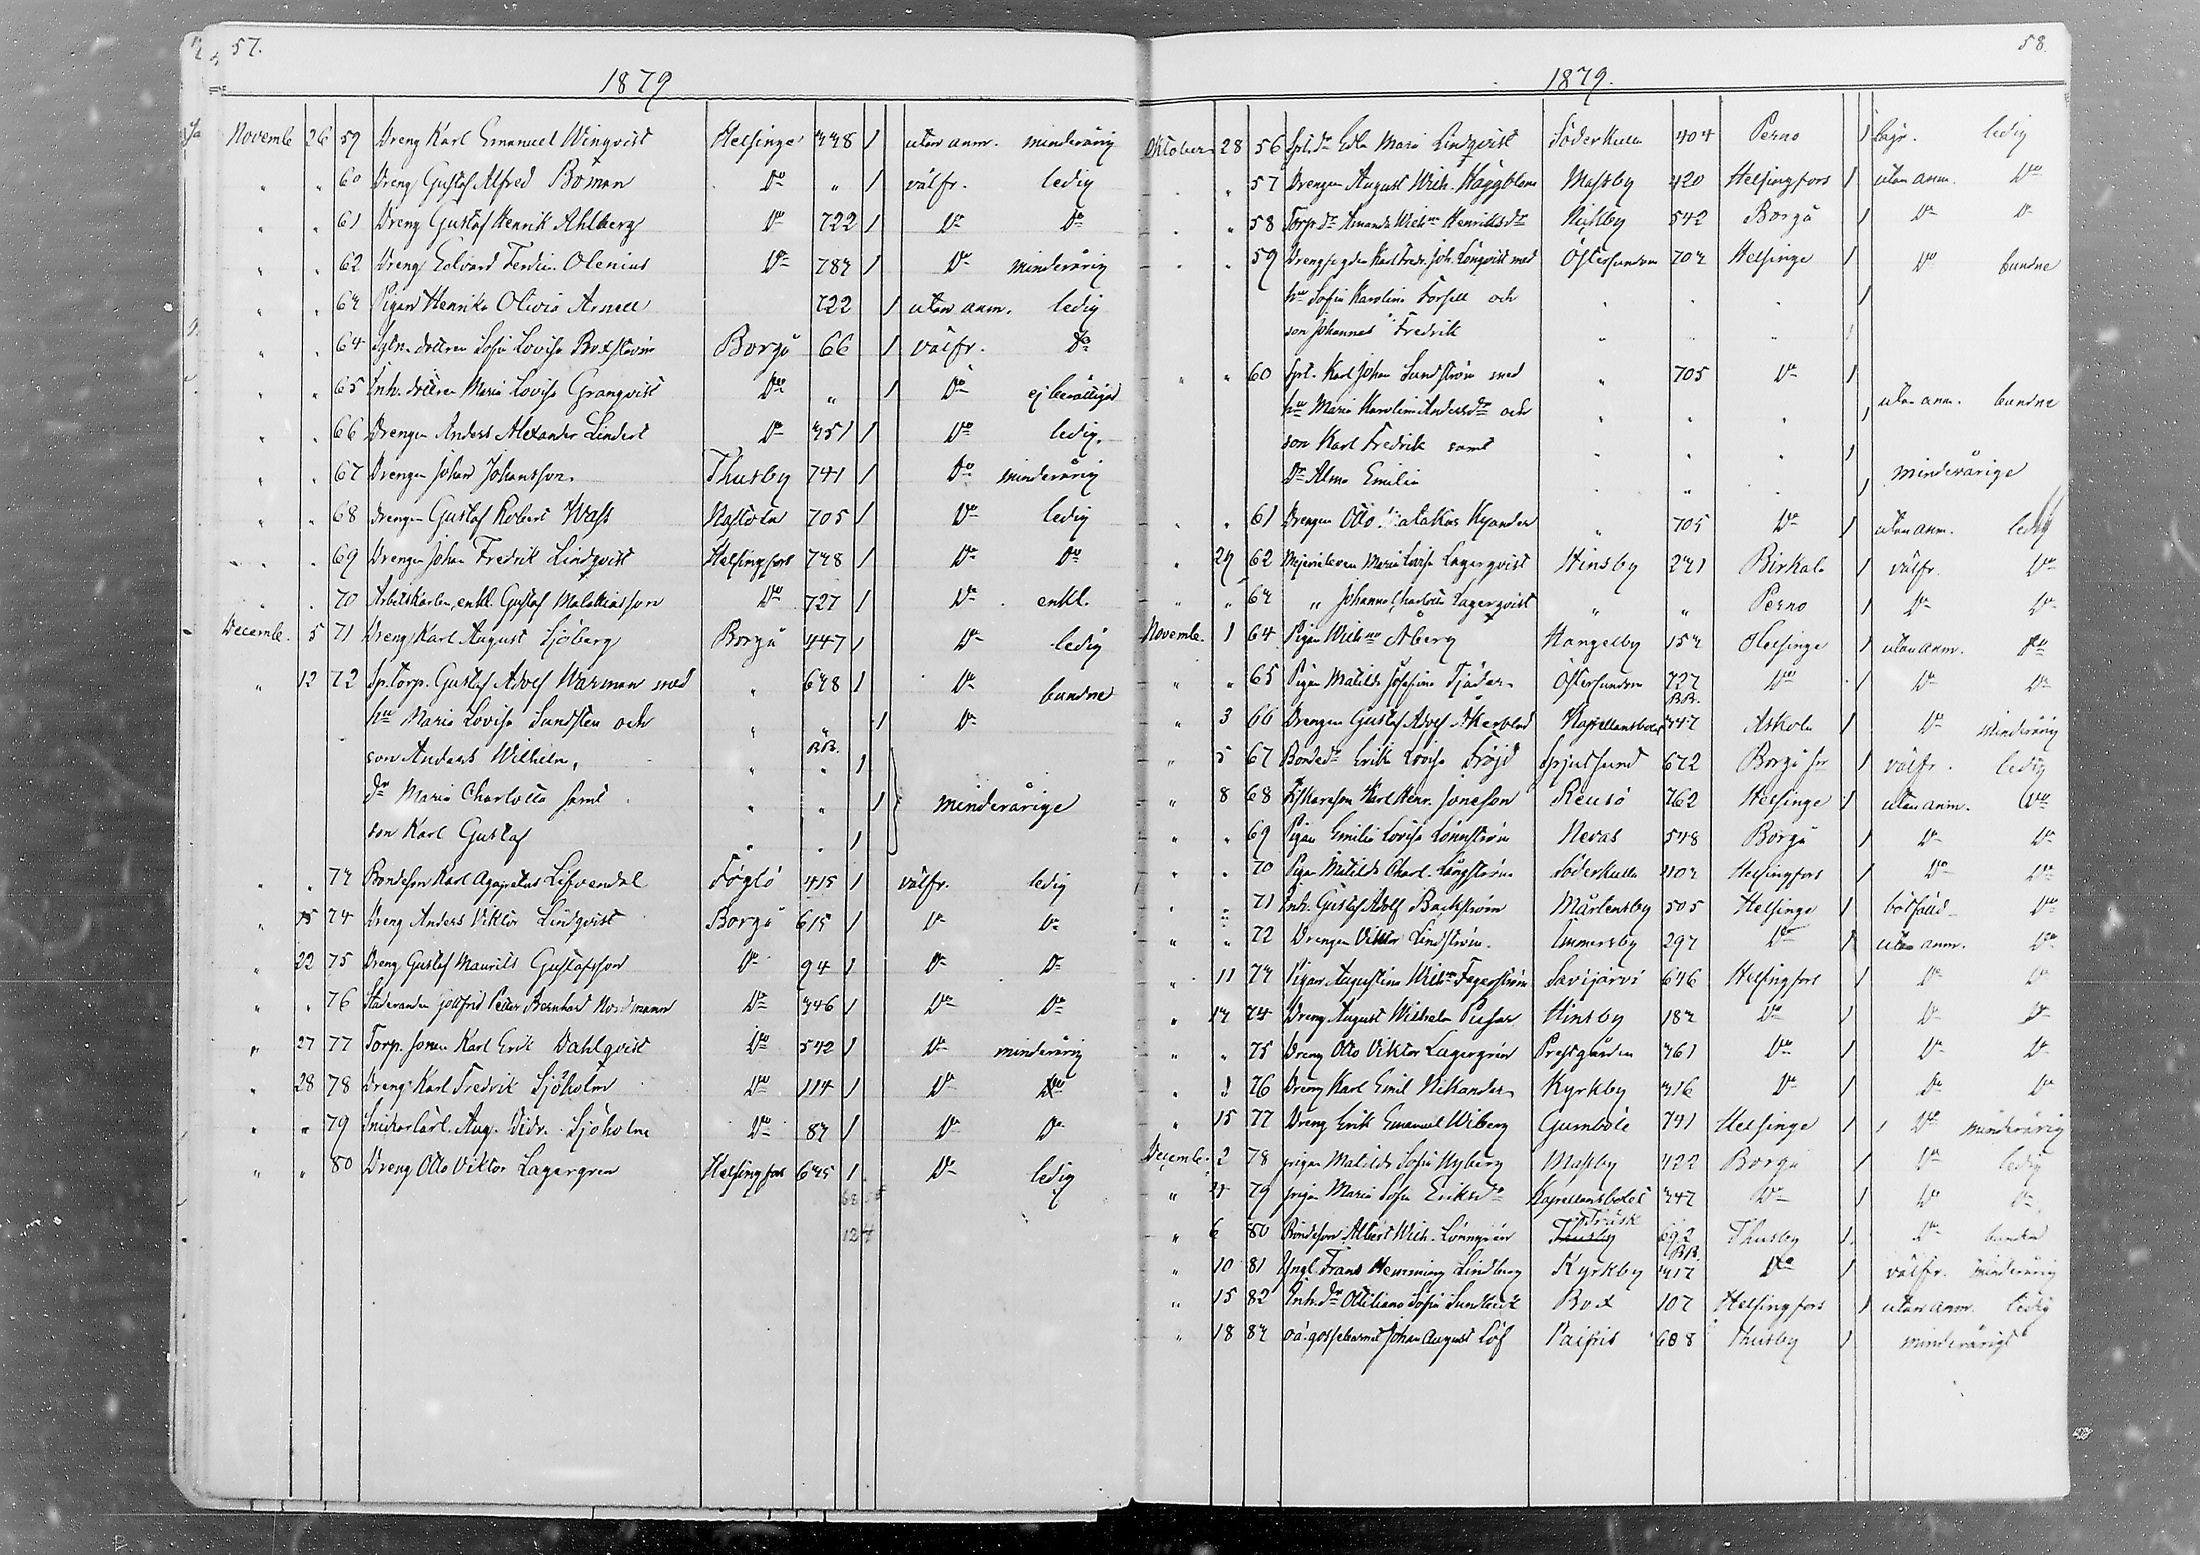 57.
1879
Novembe 26 59 Dreng Karl Emanuel Winqvist Helsinge 338 1 utan anm. minderårig
" " 60 Dreng Gustaf Alfred Boman Do " 1 välfr. ledig
" " 61 Dreng Gustaf Henrik Ahlberg Do 722 1 Do Do
" " 62 Dreng Edvard Ferdin. Olenius Do 783 1 Do minderårig
" " 63 Pigan Henrika Olivia Arnell 722 1 utan anm. ledig
" " 64 dottren Sofia Lovisa Boxström Borgå 66 1 välfr. Do
" " 65 Inh. dottren Maria Lovisa Granqvist Do " 1 Do ej berättigad
" " 66 Drengen Anders Alexander Lindert Do 351 1 Do ledig.
" " 67 Drengen Johan Johansson Thusby 741 1 Do minderårig
" " 68 drengen Gustaf Robert Wass Nastola 705 1 Do ledig
" " 69 Drengen Johan Fredrik Lindqvist Helsingfors 738 1 Do Do
" " 70 Arbetskarlen, enkl. Gustaf Malakiasson Do 727 1 Do enkl.
Decembe. 5 71 Dreng Karl August Sjöberg Borgå 447 1 Do ledig
" 12 72 Sp.torp. Gustaf Adolf Warman med " 638 1 Do bundne
hu Maria Lovisa Sundsten och " " 1 Do
son Anders Wilhelm, " B.B. " 1
dr Maria Charlotta samt " " 1 minderårige
son Karl Gustaf " " 1
" " 73 Bondeson Karl Agapetus Lifvendal Föglö 415 1 välfr. ledig
" 15 74 Dreng Anders Viktor Lindqvist Borgå 615 1 Do Do
" 22 75 Dreng Gustaf Maurits Gustafsson Do 94 1 Do Do
" " 76 Studeranden Gottfrid Petter Bernhard Nordmann Do 346 1 Do Do
" 27 77 Torp. sonen Karl Erik Dahlqvist Do 542 1 Do minderårig
" 28 78 Dreng Karl Fredrik Sjöholm Do 114 1 Do Do
" " 79 Snickarlärl. Aug. Didr. Sjöholm Do 83 1 Do Do
" " 80 Dreng Otto Viktor Lagergren Helsingfors 635 1 Do ledig
127
58.
1879.
Oktober 28 56 Edla Maria Lindqvist Söderkulla 404 Perno 1 ledig
" " 57 Drengen August Wilh. Häggblom Massby 420 Helsingfors 1 utan anm. Do
" " 58 Torp.dr Amanda Wilhna Henriksdr Nickby 542 Borgå 1 Do Do
" " 59 Karl Fredr. Joh. Lönqvist med Östersundom 703 Helsinge 1 Do bundne
hu Sofia Karolina Forsell och " " " 1
son Johannes Fredrik " " " 1
" " 60 Karl Johan Sundström med " 705 Do 1
hu Maria Karolina Andersdr och " " " 1 utan anm. bundne
son Karl Fredrik samt " " " 1
Dr Alma Emilia " " " 1 minderårige
" " 61 Drengen Otto Malakias Kyander " 705 Do 1 utan anm. ledig
" 29 62 Mejerieleven Maria Lovisa Lagerqvist Hinsby 231 Birkala 1 välfr. Do
" " 63 " Johanna Charlotta Lagerqvist " " Perno 1 Do Do
Novembe. 1 64 Pigan Wilhna Åberg Hangelby 153 Helsinge 1 utan anm. Do
" " 65 Pigan Matilda Josefina Tjäder Östersundom 727 Do 1 Do Do
" 3 66 Drengen Gustaf Adolf Åkerblad Kapellansbolet B.B. 347 Askola 1 Do minderårig
" 5 67 Bondedr Erika Lovisa Fröjd Spjutsund 672 Borgå sn 1 välfr. ledig
" 8 68 Fiskareson Karl Henr. Joneson Reusö 762 Helsinge 1 utan anm. Do
" " 69 Pigan Emilia Lovisa Lönnström Nevas 548 Borgå 1 Do Do
" " 70 Pigan Matilda Charl. Långström Söderkulla 403 Helsingfors 1 Do Do
" " 71 Inh. Gustaf Adolf Backström Mårtensby 505 Helsinge 1 bötfälld Do
" " 72 Drengen Viktor Lindström Immersby 297 Do 1 utan anm. Do
" 11 73 Pigan Augustina Wilhna Fagerström Savijärvi 646 Helsingfors 1 Do Do
" 13 74 Dreng August Wilhelm Hinsby 183 Do 1 Do Do
" " 75 Dreng Otto Viktor Lagergren Prestgården 361 Do 1 Do Do
" " 76 Dreng Karl Emil Nikander Kyrkby 316 Do 1 Do Do
" 15 77 Dreng Erik Emanuel Wiberg Gumböle 741 Helsinge 1 Do minderårig
Decembe. 2 78 pigan Matilda Sofia Nyberg Massby 422 Borgå 1 Do ledig
" " 79 pigan Maria Sofia Eriksdr Kapellansbolet 347 Do 1 Do Do
" 6 80 Bondeson Albert Wilh. Lönngren Träsk 692 Thusby 1 Do bunden
" 10 81 Yngl. Frans Hemming Lindberg Kyrkby B.B. 317 Do 1 välfr. minderårig
" 15 82 Inh.dr Ottiliana Sofia Box 107 Helsingfors 1 utan anm. ledig
" 18 83 oä. gossebarnet Johan August Löf Paipis 608 Thusby 1 minderårigt